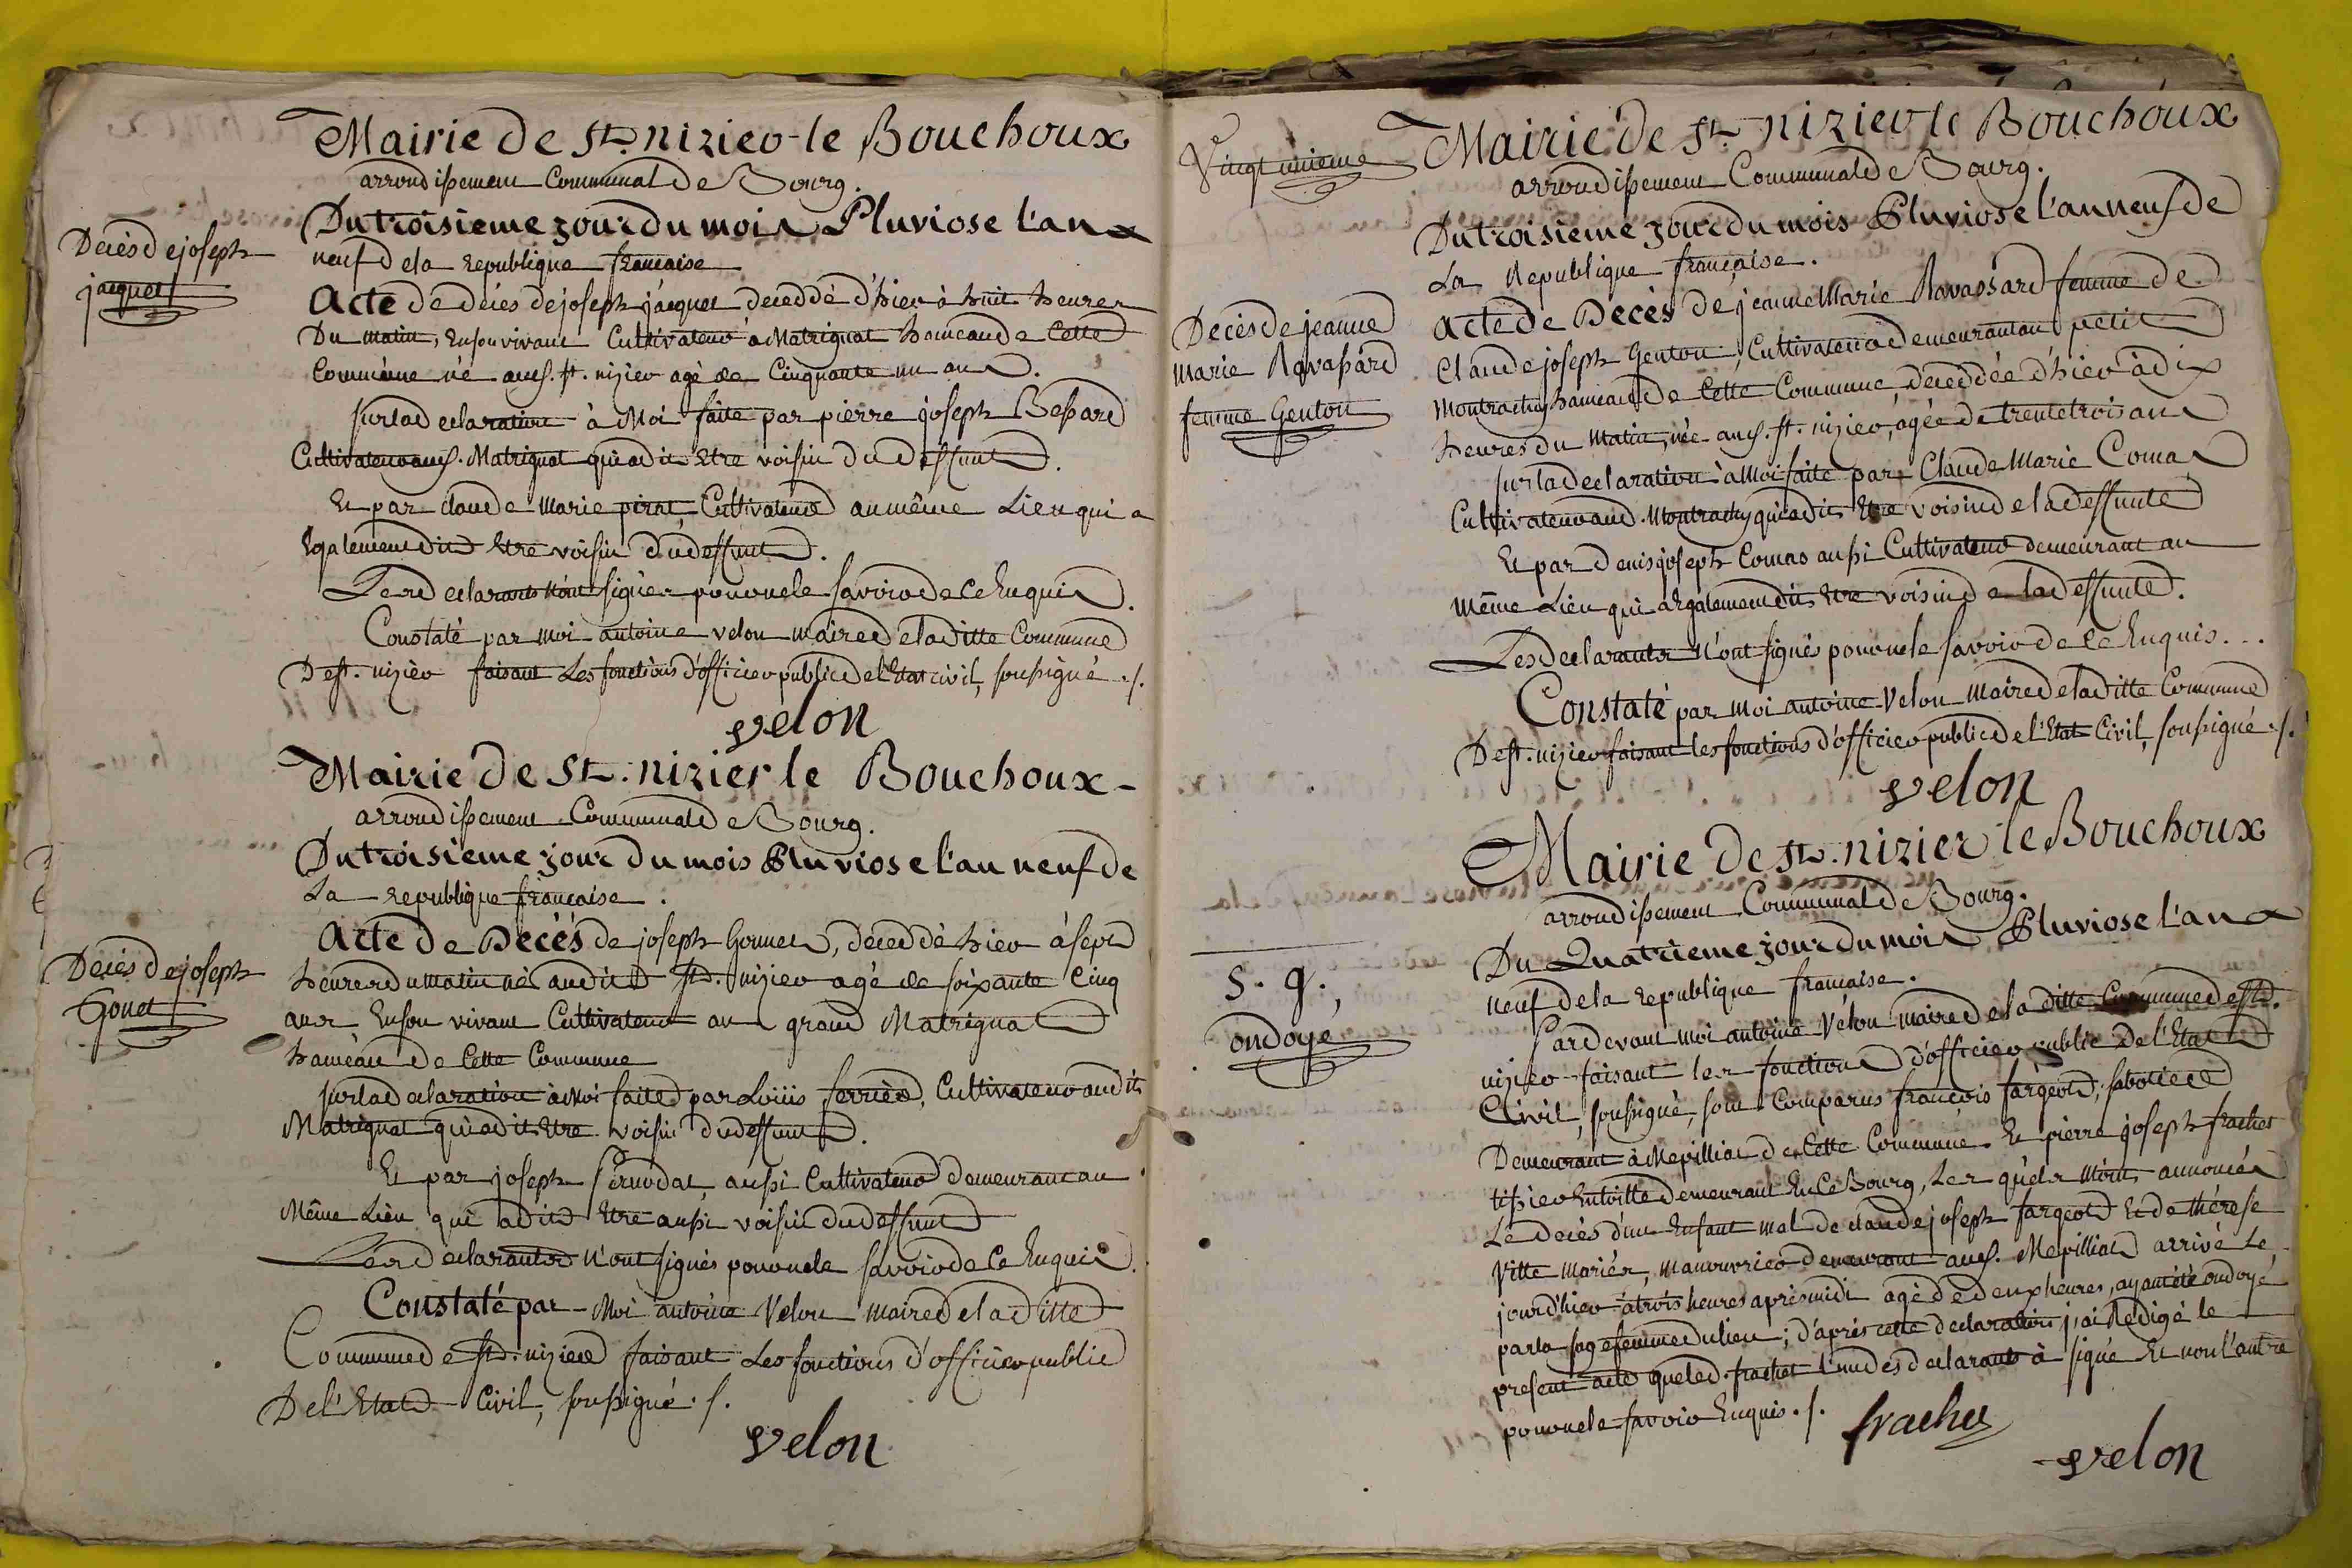 Mairie de St. nizier le Bouchoux
arrondissement Communal de Bourg.
Du troisieme jour du mois Pluviose l'an
neuf de la republique francaise
Décès de joseph
jacquet
Acte de décès de joseph jacquet décéddé d'hier à huit heures
Du matin, En son vivant Cultivateur à Matrignat hameau de Cette
Commune né aud. st. nizier agé de Cinquante un ans.
sur la declaration à Moi faite par pierre joseph Bessard
Cultivateur aud. Matrignat qui a dit Etre voisin du deffunt.
Et par claude Marie pirat, Cultivateur au même Lieu qui a
Egalement dit Etre voisin du deffunt.
Les declarants n'ont signés pour ne le savoir de ce Enquis.
Constaté par moi antoine velon maire de laditte Commune
De st. nizier faisant Les fonctions d'officier public de l'Etat civil, soussigné ./.
velon
Mairie de St. nizier le Bouchoux
arrondissement Communal de Bourg.
Du troisieme jour du mois Pluviose l'an neuf de
La republique francaise.
Décès de joseph
Gonet
Acte de Décès de joseph Gonnet, décéddé hier à sept
heures du matin né audit st. nizier agé de soixante Cinq
ans En son vivant Cultivateur au grand Matrignat
hameau de Cette Commune
sur la declaration à Moi faite par Loüis ferrier, Cultivateur audit
Matrignat qui a dit Etre voisin du deffunt.
Et par joseph aussi Cultivateur demeurant au
Même Lieu qui a dit Etre aussi voisin du deffunt
Les declarants N'ont signés pour ne le savoir de Ce Enquis.
Constaté par Moi antoine Velon maire de laditte
Commune de st. nizier faisant Les fonctions d'officier public
De l'Etat Civil, soussigné ./.
velon
Vingt unieme
Mairie de St. nizier le Bouchoux
arrondissement Communal de Bourg.
Du troisieme jour du mois Pluviose l'an neuf de
La Republique française.
Décès de jeanne
Marie Ravassard
femme Genton
Acte de Décès de jeanne Marie Ravassard femme de
Claude joseph Genton, Cultivateur demeurant au petit
Montrachy hameau de Cette Commune, décéddée d'hier à dix
heures du Matin, née aud. st. nizier, agée de trente trois ans
sur la declaration à Moi faite par Claude Marie Comas
Cultivateur aud. Montrachy qui a dit Etre voisin de la deffunte
Et par denis joseph Comas aussi Cultivateur demeurant au
même Lieu qui a Egalement dit Etre voisin de la deffunte.
Les declarants N'ont signés pour ne le savoir de Ce Enquis...
Constaté par Moi antoine Velon Maire de laditte Commune
De st. nizier faisant les fonctions d'officier public de l'Etat Civil, soussigné ./.
velon
Mairie de St. nizier le Bouchoux
arrondissement Communal de Bourg.
Du Quatrieme jour du mois Pluviose l'an
neuf de la republique francaise.
S. g.
ondoyé
Pardevant moi antoine Velon maire de la ditte Commune de st.
nizier faisant les fonctions d'officier public de l'Etat
Civil, soussigné, sont Comparus françois fargeot, sabotier
Demeurant à Mepilliat de Cette Commune Et pierre joseph frachet
tissier Entoille demeurant En Ce Bourg, Les quels M'ont annoncés
Le décès d'un Enfant mal de claude joseph fargeot Et de thérese
Vitte mariés, manouvrier demeurant aud. Mepilliat arrivé Le
jour d'hier à trois heures après midi agé de deux heures, ayant été ondoyé
par la sage femme du lieu; d'après cette declaration j'ai Redigé le
present acte que led. frachet l'un des declarants à signé Et non l'autre
pour ne le savoir Enquis ./.
frachet
velon